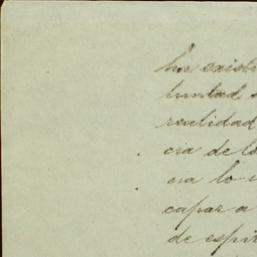 ha existi
luntad
realidad
cia de lo
cia lo
capar a
de espir